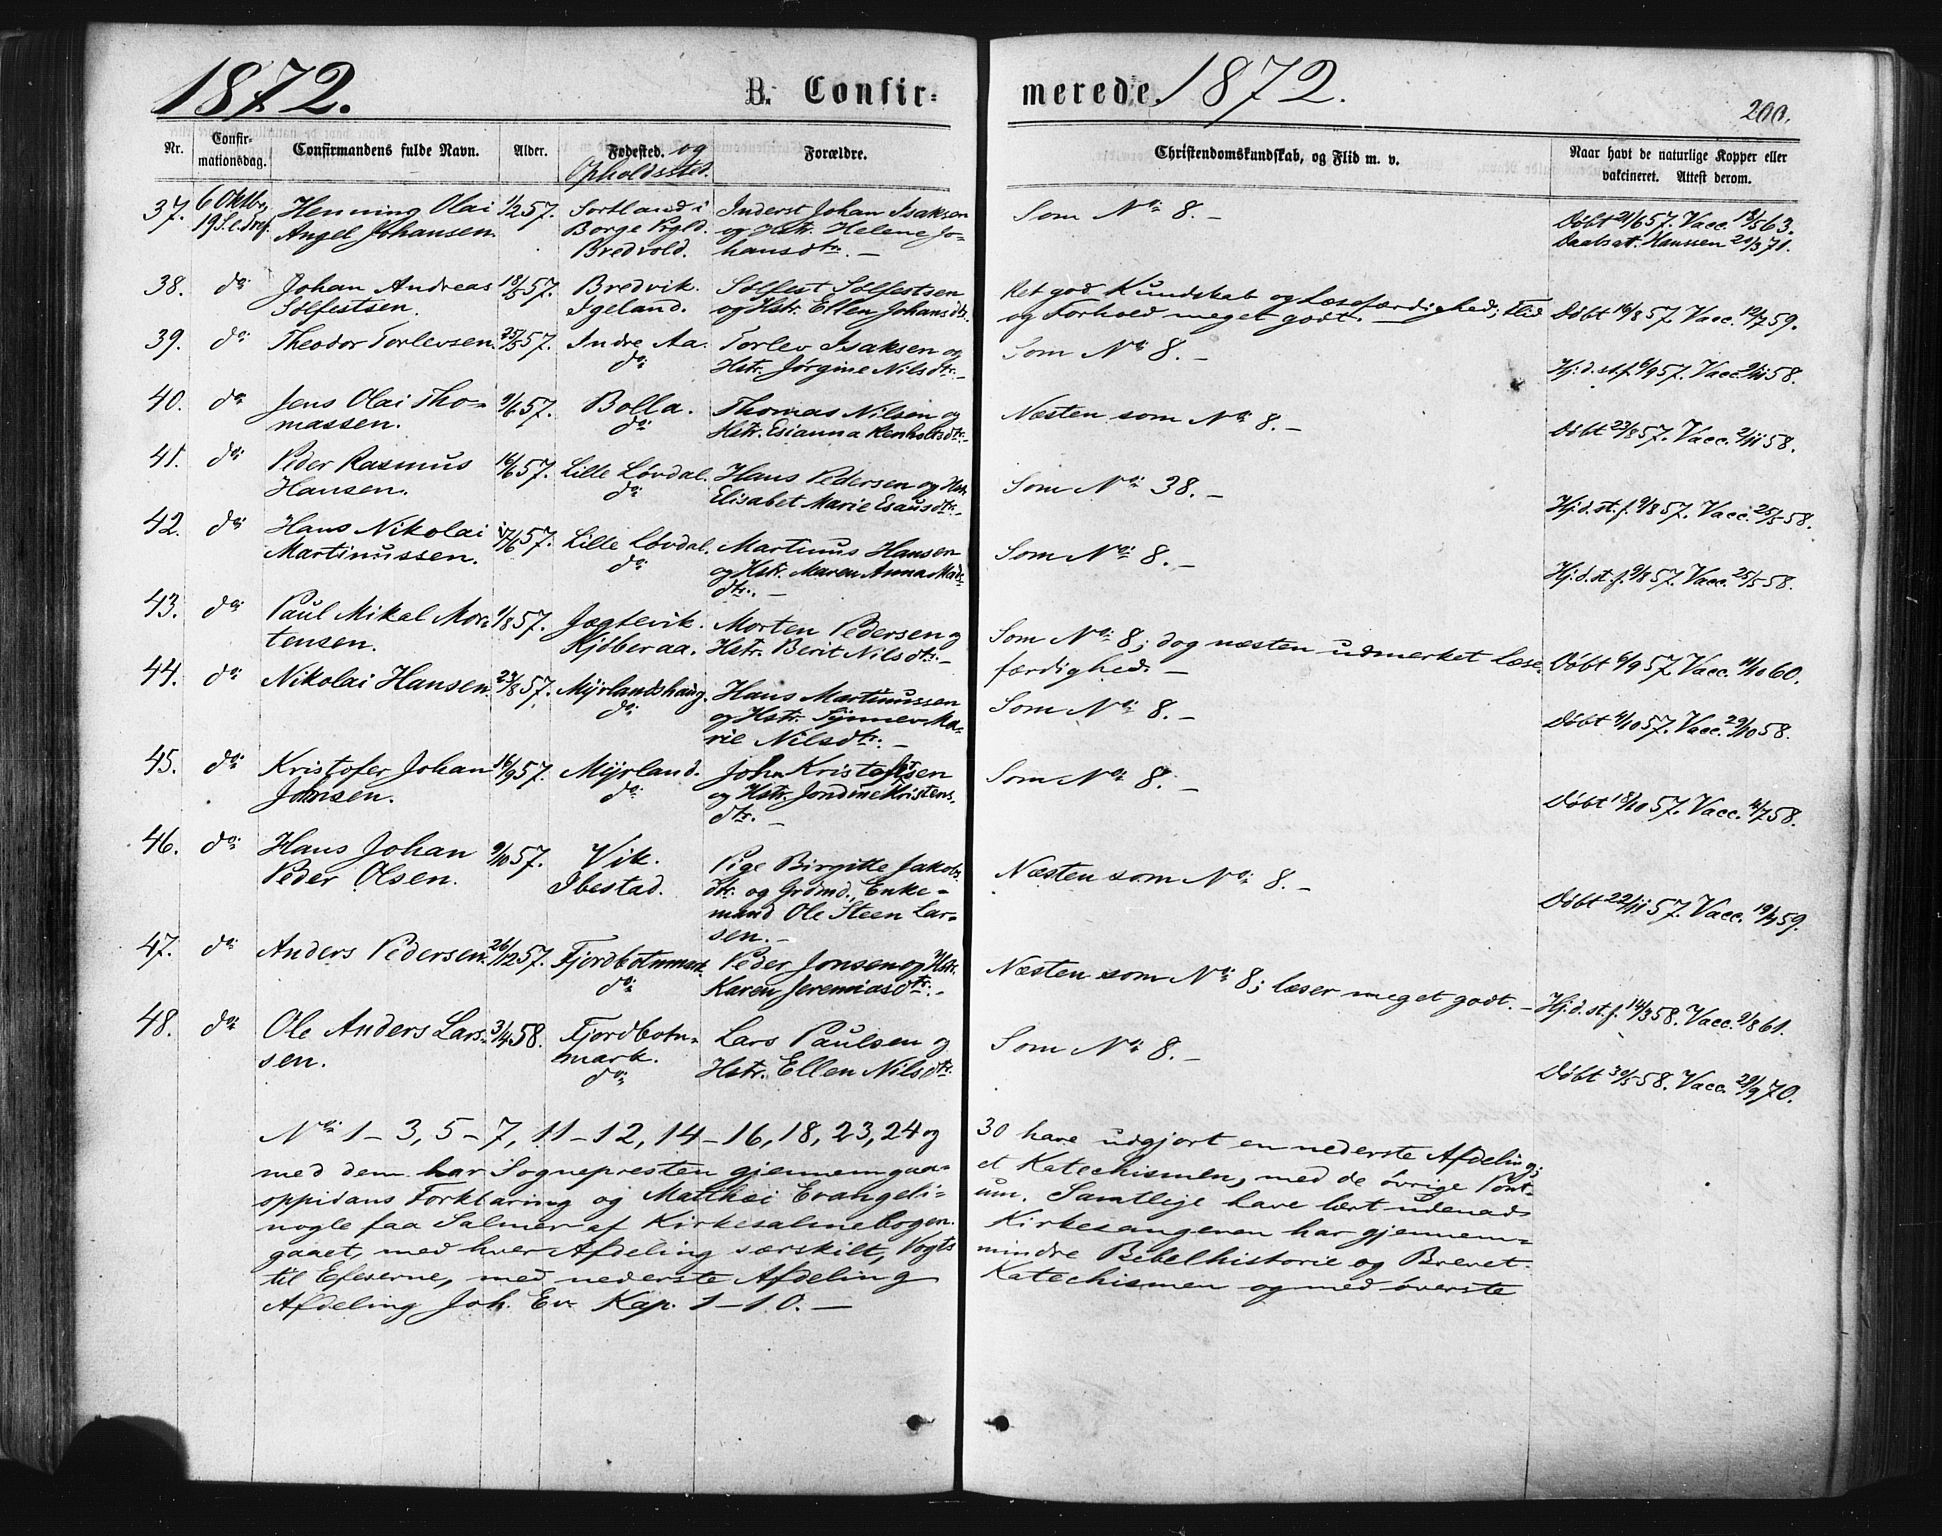 1872.
B. Confirmerede. 1872.
200.
Nr.
Confirmationsdag.
Confirmandens fulde Navn.
Alder.
Fødested. og Opholdssted.
Forældre.
Christendomskundskab, og Flid m. v.
Naar havt de naturlige Kopper eller vakcineret. Attest derom.
37. 6 Oktbr, 19 S. e. Tref. Henning Olai 1/2 57. Sortland i Inderst Johan Isaksen Som No 8. – Døbt 21/6 57. Vacc. 63.
Angel Johansen. Borge Prgld. og Hstr. Helene Jo= Hanssen 71.
Bredvold. hansdtr. –
38. do Johan Andreas 57. Bredvik. Sølfest Sølfestsen Ret god Kundskab og Læsefærdighed; Flid Døbt 16/8 57. Vacc. 59.
Sølfestsen. Igeland. og Hstr. Ellen Johansdtr. og Forhold meget godt. –
39. do Theodor Torlevsen. 25/5 57. Indre Aa. Torlev Isaksen og Som No 8. – Hj. d. st. f. 6/9 57. Vacc. 58.
do Hstr. Jørgine Nilsdtr. –
40. do Jens Olai Tho= 9/6 57. Bolla. Thomas Nilsen og Næsten som No 8. – Døbt 23/8 57. Vacc. 2/11 58.
massen. do Hstr. Esianna Renholtsdtr. –
41. do Peder Rasmus 16/6 57. Lille Løvdal. Hans Pedersen og Hstr. Som No 38. – Hj. d. st. f. 9/8 57. Vacc. 25/5 58.
Hansen. do Elisabet Marie Esausdtr. –
42. do Hans Nikolai 17/6 57. Lille Løvdal. Martinus Hansen Som No 8. – Hj. d. st. f. 9/8 57. Vacc. 25/5 58.
Martinussen. do og Hstr. Maren Anna Mads=
dtr. –
43. do Paul Mikal Mor= 1/8 57. Jægtevik. Morten Pedersen og Som No 8; dog næsten udmerket læse= Døbt 6/9 57. Vacc. 11/10 60.
tensen. Kjøberaa. Hstr. Berit Nilsdtr. – færdighed. –
44. do Nikolai Hansen. 57. Myrlandshaug. Hans Martinussen Som No 8. – Døbt 4/10 57. Vacc. 29/10 58.
do og Hstr. Synnev Ma=
rie Nilsdtr. –
45. do Kristofer Johan 16/9 57. Myrland. John Kristofsen Som No 8. – Døbt 18/10 57. Vacc. 4/7 58.
Jonsen. do og Hstr. Jondine Kristens=
dtr. –
46. do Hans Johan 9/10 57. Vik. Pige Birgitte Jakobs= Næsten som No 8. – Døbt 22/11 57. Vacc. 59.
Peder Olsen. Ibestad. dtr. og Grdmd., Enke=
mand Ole Steen Lar=
sen. –
47. do Anders Pedersen. 26/12 57. Fjordbotnmark. Peder Jonsen og Hstr. Næsten som No 8; læser meget godt. – Hj. d. st. f. 14/3 58. Vacc. 9/8 61.
do Karen Jeremiasdtr. –
48. do Ole Anders Lars= 3/4 58. Fjordbotn= Lars Paulsen og Som No 8. – Døbt 30/5 58. Vacc. 29/9 70.
sen. mark. Hstr. Ellen Nilsdtr.
do
No 1–3, 5–7, 11–12, 14–16, 18, 23, 24 og 30 have udgjort en nederste Afdeling;
med dem har Sognepresten gjennemgaaet Katechismen, med de øvrige Pont=
oppidans Forklaring og Matthæi Evangelium. Samtlige have lært udenad
nogle faa Salmer af Kirkesalmebogen. Kirkesangeren har gjennem=
gaaet, med hver Afdeling særskilt, Vogts mindre Bibelhistorie og Brevet
til Efeserne, med nederste Afdeling Katechismen og med øverste
Afdeling Joh. Ev. Kap. 1–10. –